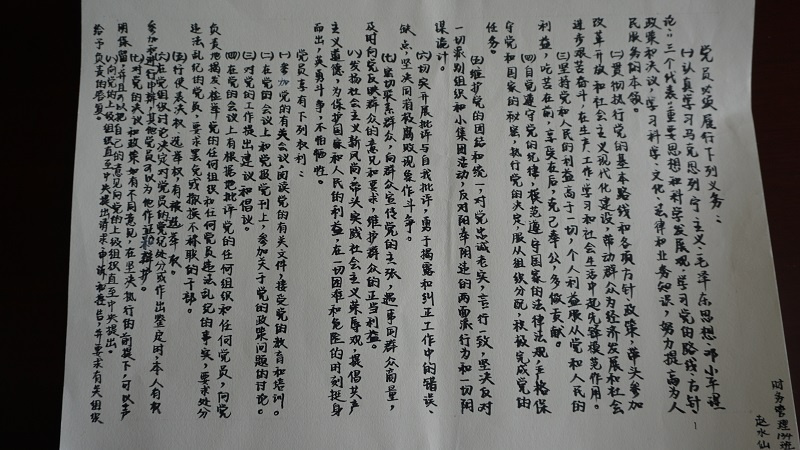 财务管理134班
赵水仙
1
党员必须履行下列义务：
(一)认真学习马克思列宁主义、毛泽东思想、邓小平理
论、三个代表重要思想和科学发展观，学习党的路线、方针、
政策和决议，学习科学、文化、法律和业务知识，努力提高为人
民服务的本领。
(二)贯彻执行党的基本路线和各项方针、政策，带头参加
改革开放和社会主义现代化建设，带动群众为经济发展和社会
进步艰苦奋斗，在生产、工作、学习和社会生活中起先锋模范作用。
(三)坚持党和人民的利益高于一切，个人利益服从党和人民的
利益，吃苦在前，享受在后，克己奉公，多做贡献。
(四)自觉遵守党的纪律，模范遵守国家的法律法规，严格保
守党和国家的秘密，执行党的决定，服从组织分配，积极完成党的
任务。
(五)维护党的团结和统一，对党忠诚老实，言行一致，坚决反对
一切派别组织和小集团活动，反对阳奉阴违的两面派行为和一切阴
谋诡计。
(六)切实开展批评与自我批评，勇于揭露和纠正工作中的错误、
缺点，坚决同消极腐败现象作斗争。
(七)密切联系群众，向群众宣传党的主张，遇事同群众商量，
及时向党反映群众的意见和要求，维护群众的正当利益。
(八)发扬社会主义新风尚，带头实践社会主义荣辱观，提倡共产
主义道德，为保护国家和人民的利益，在一切困难和危险的时刻挺身
而出，英勇斗争，不怕牺牲。
党员享有下列权利：
(一)参加党的有关会议，阅读党的有关文件，接受党的教育和培训。
(二)在党的会议上和党报党刊上，参加关于党的政策问题的讨论。
(三)对党的工作提出建议和倡议。
(四)在党的会议上有根据地批评党的任何组织和任何党员，向党
负责地揭发、检举党的任何组织和任何党员违法乱纪的事实，要求处分
违法乱纪的党员，要求罢免或撤换不称职的干部。
(五)行使表决权、选举权，有被选举权。
(六)在党组织讨论决定对党员的党纪处分或作出鉴定时，本人有权
参加和进行申辩，其他党员可以为他作证和辩护。
(七)对党的决议和政策如有不同意见，在坚决执行的前提下，可以声
明保留，并且可以把自己的意见向党的上级组织直至中央提出。
(八)向党的上级组织直至中央提出请求、申诉和控告，并要求有关组织
给予负责的答复。